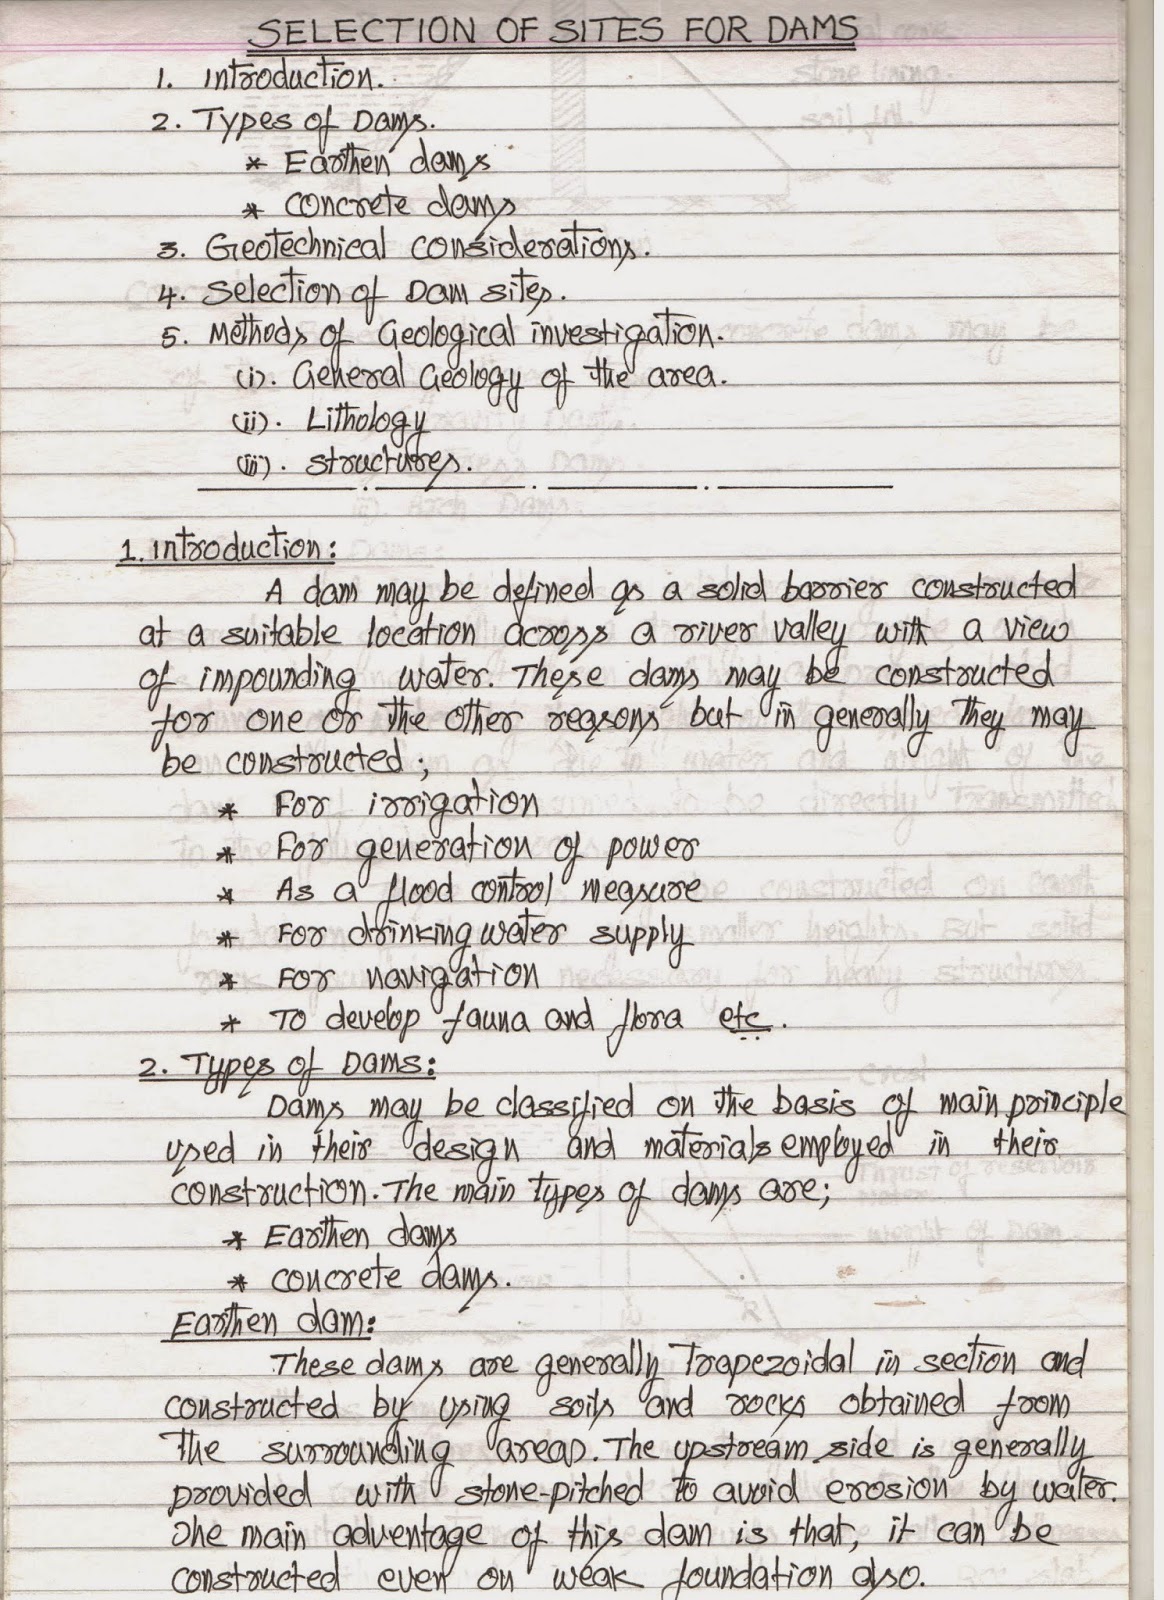 SELECTION OF SITES FOR DAMS
1. Introduction.
2. Types of Dams.
* Earthen dams
* concrete dams
3. Geotechnical considerations.
4. Selection of Dam sites.
5. Methods of Geological investigation.
(i). General Geology of the area.
(ii). Lithology
(iii). structures.
1. Introduction:
A dam may be defined as a solid barrier constructed
at a suitable location across a river valley with a view
of impounding water. These dams may be constructed
for one or the other reasons but in generally they may
be constructed;
* For irrigation
* For generation of power
* As a flood control measure
* For drinking water supply
* For navigation
* To develop fauna and flora etc.
2. Types of Dams:
Dams may be classified on the basis of main principle
used in their design and materials employed in their
construction. The main types of dams are;
* Earthen dams
* concrete dams.
Earthen dam:
These dams are generally Trapezoidal in section and
constructed by using soils and rocks obtained from
the surrounding areas. The upstream side is generally
provided with stone-pitched to avoid erosion by water.
The main adventage of this dam is that, it can be
constructed even on weak foundation also.